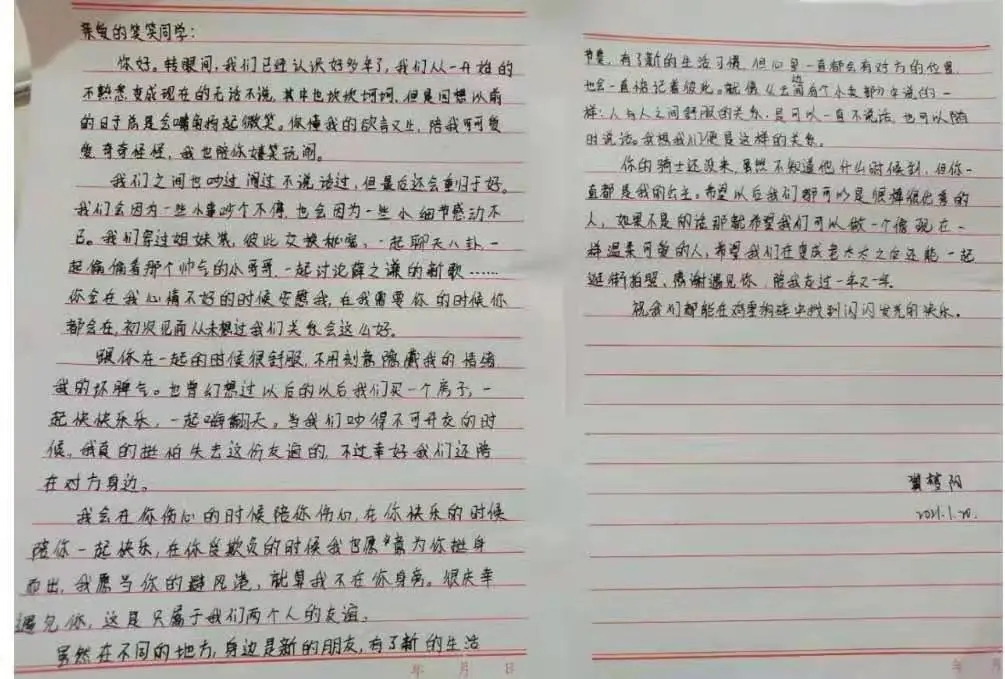 亲爱的笑笑同学：
你好。转眼间，我们已经认识好多年了，我们从一开始的
不熟悉变成现在的无话不说，其中也坎坎坷坷，但是回想以前
的日子总是会嘴角扬起微笑。你懂我的欲言又止，陪我可可爱
爱奇奇怪怪，我也陪你嬉笑玩闹。
我们之间也吵过闹过不说话过，但最后还会重归于好。
我们会因为一些小事吵个不停，也会因为一些小细节感动不
已。我们穿过姐妹装，彼此交换秘密，一起聊天八卦一
起偷偷看那个帅气的小哥哥，一起讨论薛之谦的新歌……
你会在我心情不好的时候安慰我，在我需要你的时候你
都会在，初次见面从未想过我们关系会这么好。
跟你在一起的时候很舒服，不用刻意隐藏我的情绪
我的坏脾气。也曾幻想过以后的以后我们买一个房子，一
起快快乐乐，一起嗨翻天。当我们吵得不可开交的时
候，我真的挺怕失去这份友谊的，不过幸好我们还陪
在对方身边。
我会在你伤心的时候陪你伤心，在你快乐的时候
陪你一起快乐，在你受欺负的时候我也愿意为你挺身
而出，我愿当你的避风港，就算我不在你身旁。很庆幸
遇见你，这是只属于我们两个人的友谊。
虽然在不同的地方，身边是新的朋友，有了新的生活
年 月 日
节奏，有了新的生活习惯，但心里一直都会有对方的位置，
也会一直惦记着彼此。就像《云边有个小卖部》中说的一
样：人与人之间舒服的关系，是可以一直不说话，也可以随
时说话。我想我们便是这样的关系。
你的骑士还没来，虽然不知道他什么时候到，但你一
直都是我的公主。希望以后我们都可以是很棒很优秀的
人，如果不是的话那就希望我们可以做一个像现在一
样温柔可爱的人，希望我们在变成老太太之后还能一起
逛街拍照，感谢遇见你，陪我走过一年又一年。
祝我们都能在鸡零狗碎中找到闪闪发光的快乐。
梦阳
2021.1.20.
年 月